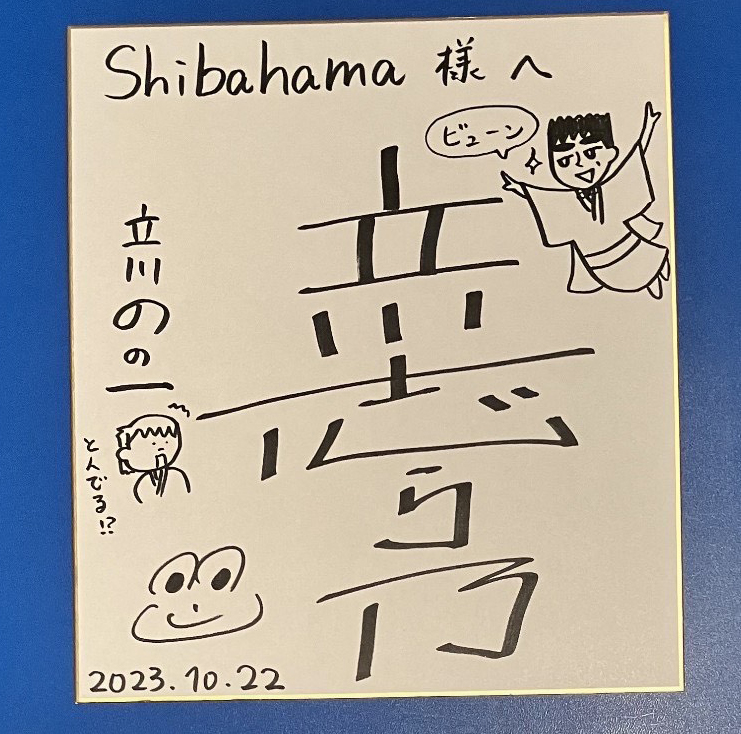 Shibahama 様 へ
ビューン
立川志ら乃
立川のの一
とんでる!?
2023.10.22